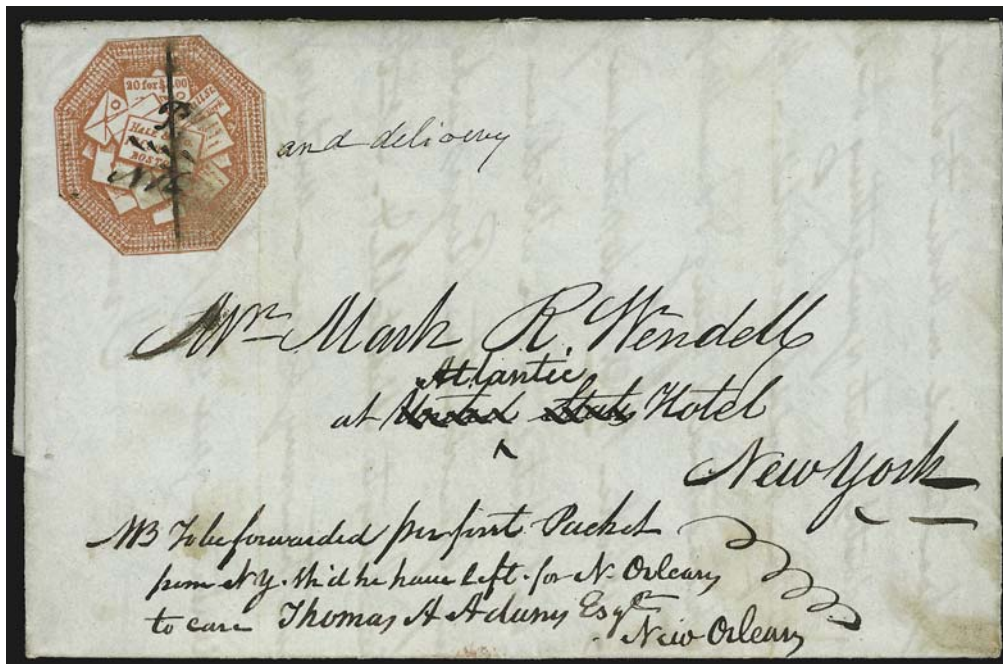 20 for $1.00
HALE & CO.
BOSTON
and delivery
Mr. Mark R. Wendell
Atlantic
at United States Hotel
New York
NB To be forwarded per first Packet
from N.Y. sh'd he have left for N. Orleans
to care Thomas A Adams Esqr
New Orleans